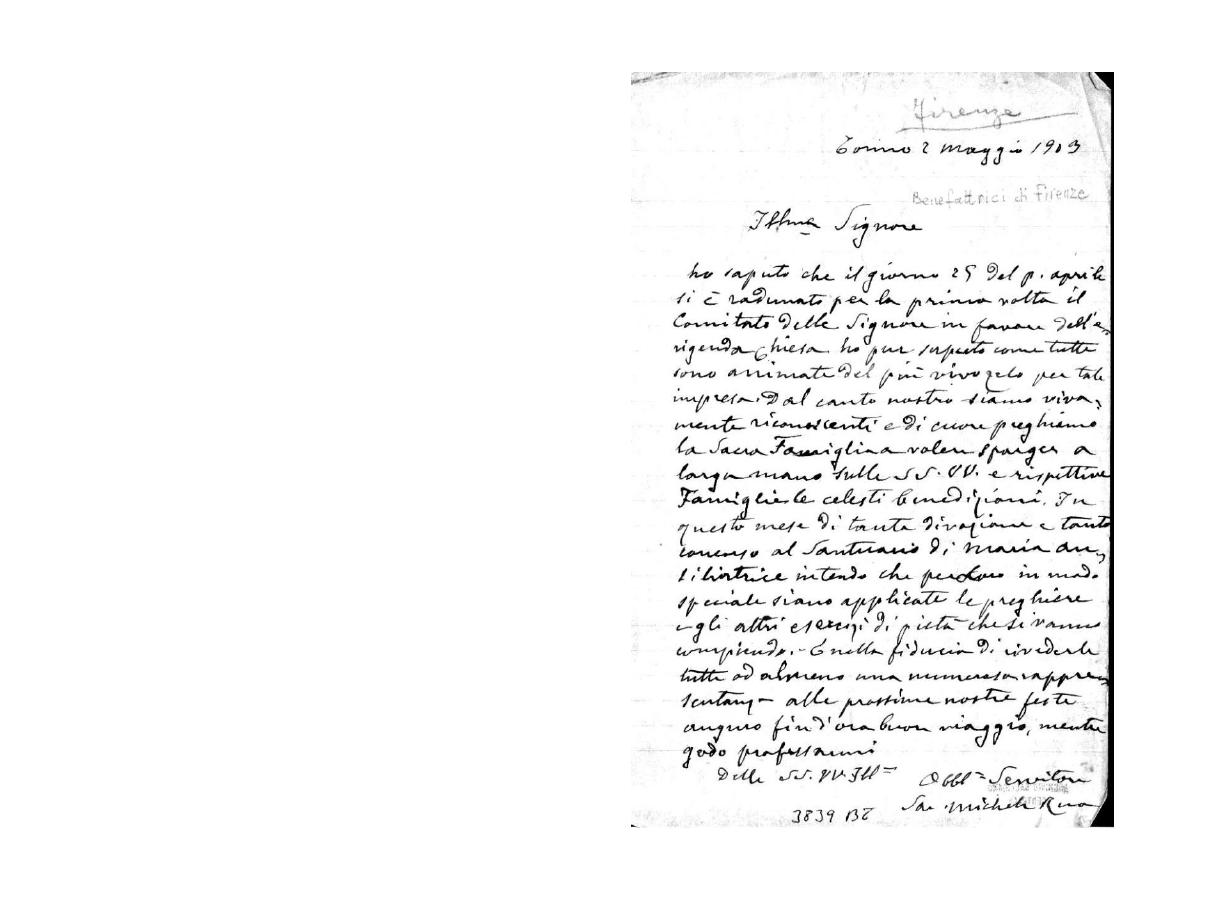 Firenze
Torino 2 maggio 1903
Benefattrici di Firenze
Ill.me Signore
ho saputo che il giorno 25 del p. aprile
si è radunato per la prima volta il
Comitato delle Signore in favore dell'e-
rigenda Chiesa. ho pur saputo come tutte
sono animate del più vivo zelo per tale
impresa. Dal canto nostro siamo viva-
mente riconoscenti e di cuore preghiamo
la Sacra Famiglia a voler sparger a
larga mano sulle SS. VV. e rispettive
Famiglie le celesti benedizioni. In
questo mese di tanta divozione e tanto
concorso al Santuario di Maria Au-
siliatrice intendo che per Loro in modo
speciale siano applicate le preghiere
e gli altri esercizi di pietà che si vanno
compiendo. - E nella fiducia di rivederle
tutte od almeno una numerosa rappre-
sentanza alle prossime nostre feste
auguro fin d'ora buon viaggio, mentre
godo professarmi
Delle SS. VV. Ill=
Obbl= Servitore
Sac. Michele Rua
3839 BZ